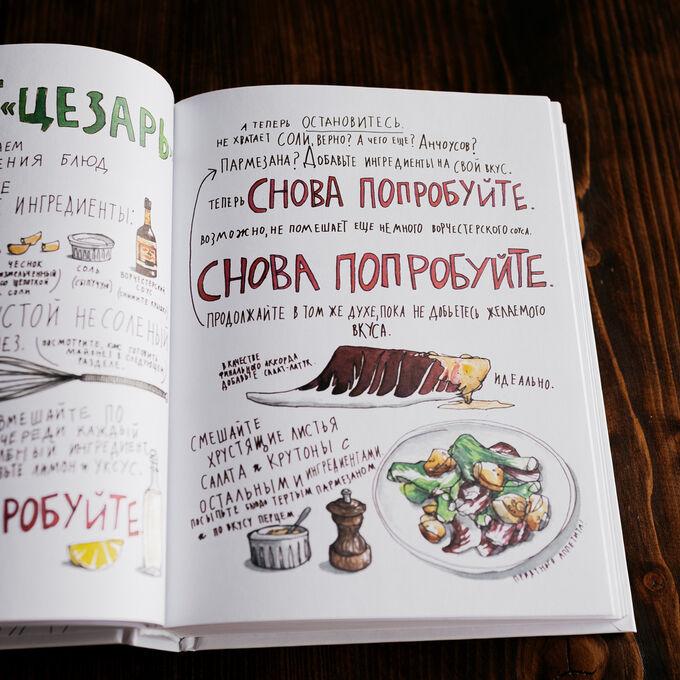 «ЦЕЗАРЬ»
БЛЮД
ИНГРЕДИЕНТЫ:
ЧЕСНОК
СО ЩЕПОТКОЙ
СОЛИ
СОЛЬ
(СЫПУЧУЮ)
ВОРЧЕСТЕРСКИЙ
СОУС
НЕСОЛЕНЫЙ
ПОСМОТРИТЕ, КАК ГОТОВИТЬ
МАЙОНЕЗ В СЛЕДУЮЩЕМ
РАЗДЕЛЕ.
ПО
КАЖДЫЙ
ИНГРЕДИЕНТ
ЛИМОН И УКСУС.
А ТЕПЕРЬ ОСТАНОВИТЕСЬ.
НЕ ХВАТАЕТ СОЛИ, ВЕРНО? А ЧЕГО ЕЩЕ? АНЧОУСОВ?
ПАРМЕЗАНА? ДОБАВЬТЕ ИНГРЕДИЕНТЫ НА СВОЙ ВКУС.
ТЕПЕРЬ СНОВА ПОПРОБУЙТЕ.
ВОЗМОЖНО, НЕ ПОМЕШАЕТ ЕЩЕ НЕМНОГО ВОРЧЕСТЕРСКОГО СОУСА.
СНОВА ПОПРОБУЙТЕ.
ПРОДОЛЖАЙТЕ В ТОМ ЖЕ ДУХЕ, ПОКА НЕ ДОБЬЕТЕСЬ ЖЕЛАЕМОГО
ВКУСА.
В КАЧЕСТВЕ
ФИНАЛЬНОГО АККОРДА
ДОБАВЬТЕ САЛАТ-ЛАТУК.
ИДЕАЛЬНО.
СМЕШАЙТЕ
ХРУСТЯЩИЕ ЛИСТЬЯ
САЛАТА И КРУТОНЫ С
ОСТАЛЬНЫМИ ИНГРЕДИЕНТАМИ
ПОСЫПЬТЕ БЛЮДО ТЕРТЫМ ПАРМЕЗАНОМ
И ПО ВКУСУ ПЕРЦЕМ
ПРИЯТНОГО АППЕТИТА!